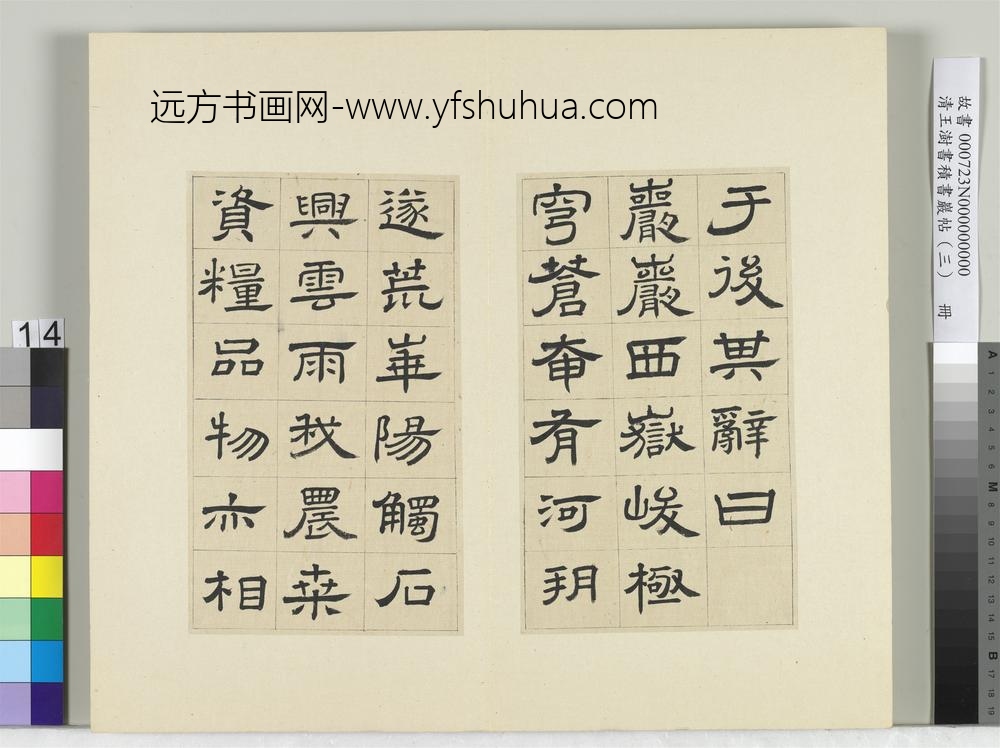 远方书画网-www.yfshuhua.com
于後其辭曰
巖巖西嶽峻極
穹蒼奄有河朔
遂荒華陽觸石
興雲雨我農桑
資糧品物亦相
故書 000723N000000000
清王澍書積書巖帖(三) 冊
14
A 1 2 3 4 5 6 M 8 9 10 11 12 13 14 15 B 17 18 19